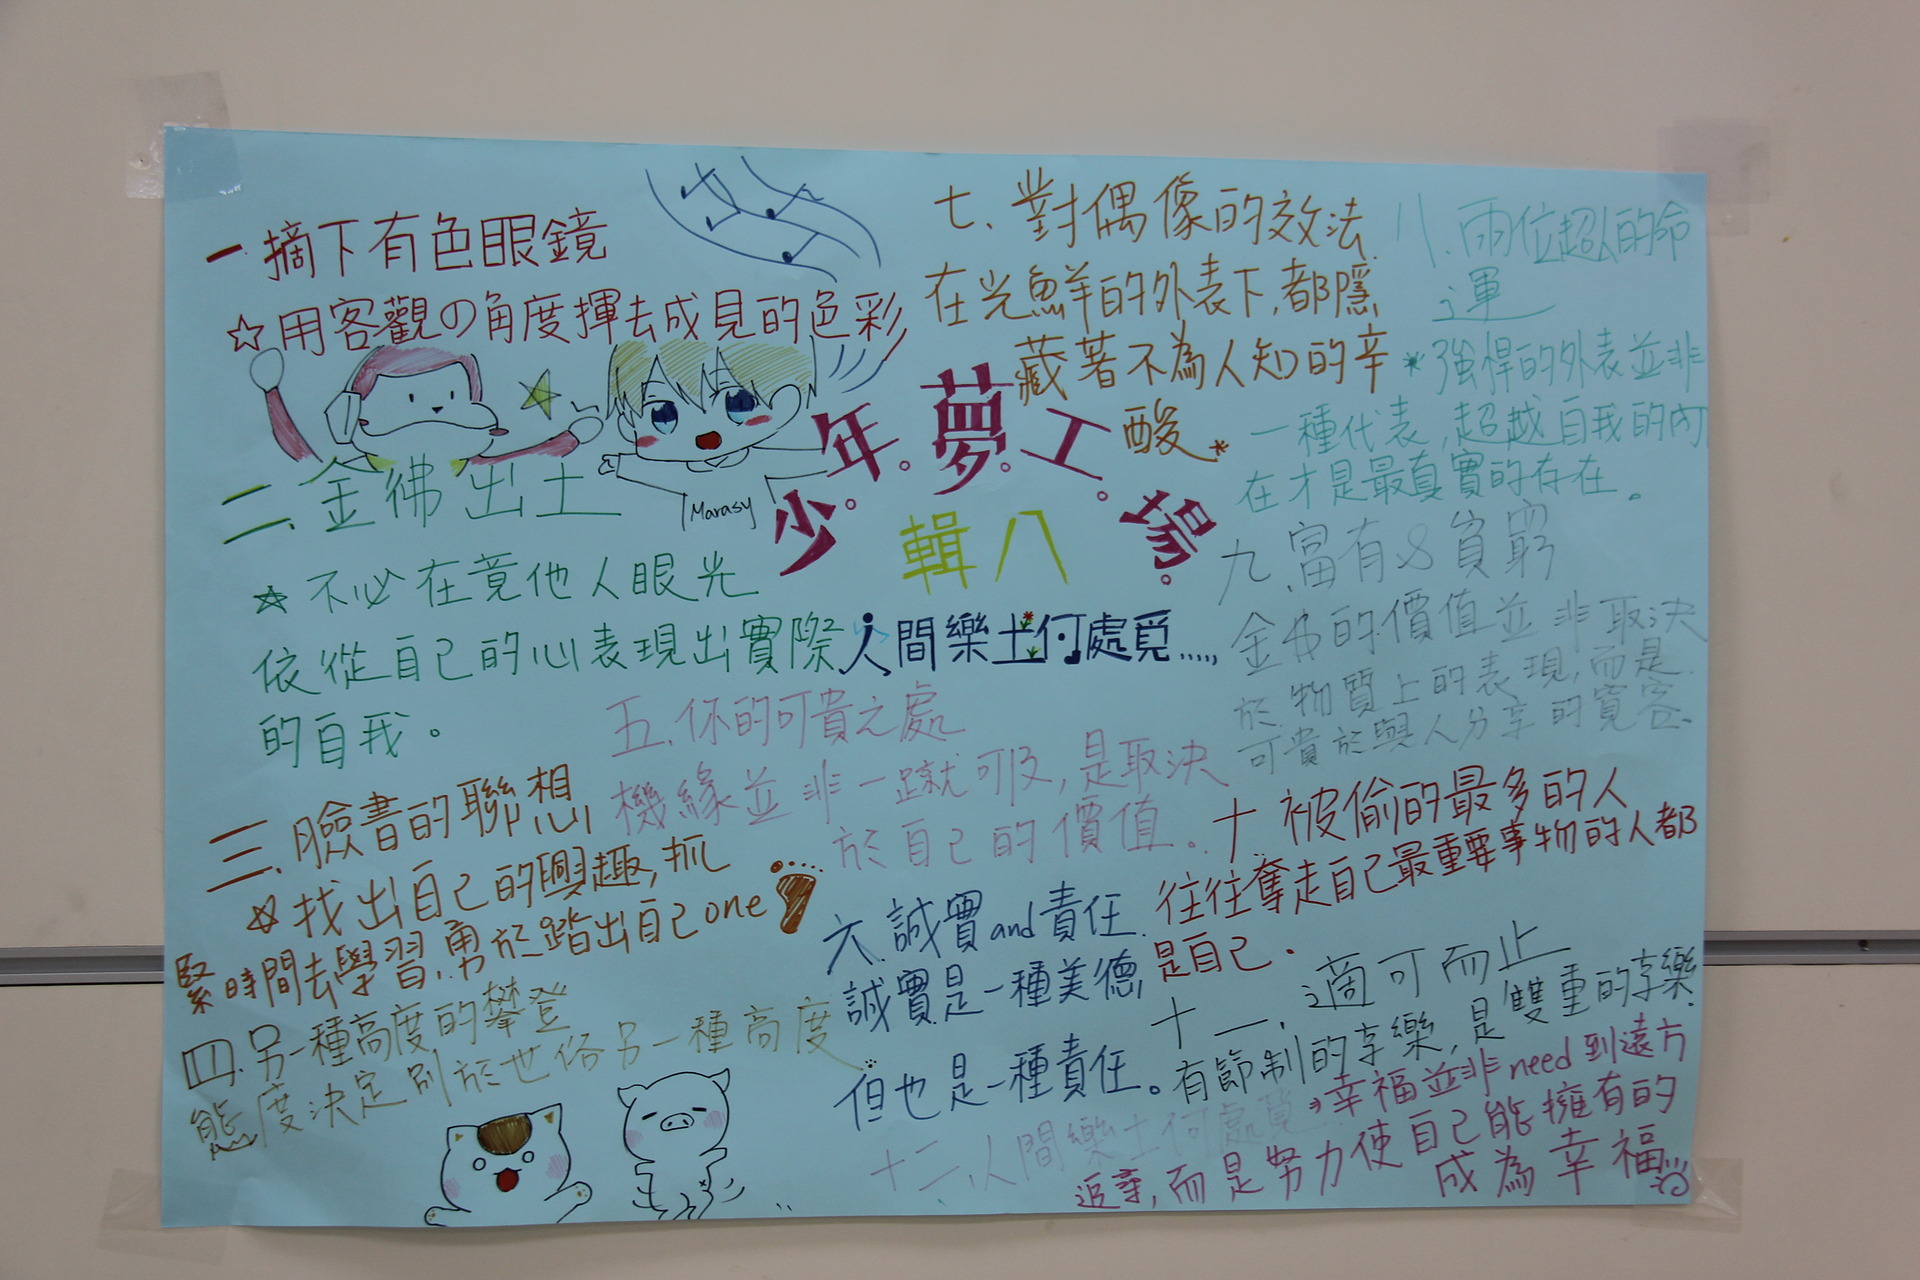 一.摘下有色眼鏡
☆用客觀の角度揮去成見的色彩
Marasy
二.金彿出土
☆不必在竟他人眼光
依從自己的心表現出實際
的自我。
三.臉書的聯想
☆找出自己的興趣,抓
緊時間去學習,勇於踏出自己one
四.另一種高度的攀登
態度決定別於世俗另一種高度
少。年。夢。工。場。
輯八
人間樂土何處覓.....
五.你的可貴之處
機緣並非一蹴可及,是取決
於自己的價值。
六.誠實and責任.
誠實是一種美德,
但也是一種責任。
七.對偶像的效法
在光鮮的外表下,都隱
藏著不為人知的辛
酸*
八.兩位超人的命
運
*強悍的外表並非
一種代表,超越自我的內
在才是最真實的存在。
九.富有&貧窮
的價值並非取決
於物質上的表現,而是
可貴於與人分享的寬容.
十.被偷的最多的人
往往奪走自己最重要事物的人都
是自己.
十一.適可而止
有節制的享樂,是雙重的享樂.
十二.人間樂土何處覓
*幸福並非need到遠方
追尋,而是努力使自己能擁有的
成為幸福